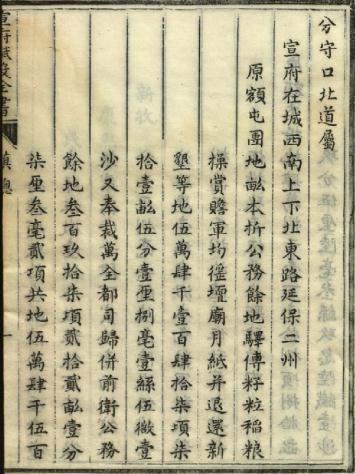 分守口北道屬
宣府在城西南上下北東路延保二州
原額屯團地畝本折公務餘地驛傳籽粒稻粮
操賞贍軍均徭壇廟月紙并退還新
墾等地伍萬肆千壹百肆拾柒頃柒
拾壹畝伍分壹厘捌毫壹絲伍微壹
沙又奉裁萬全都司歸併前衛公務
餘地叁百玖拾柒頃貳拾貳畝壹分
柒厘叁毫貳項共地伍萬肆千伍百
宣府賦役全書
鎮總
一